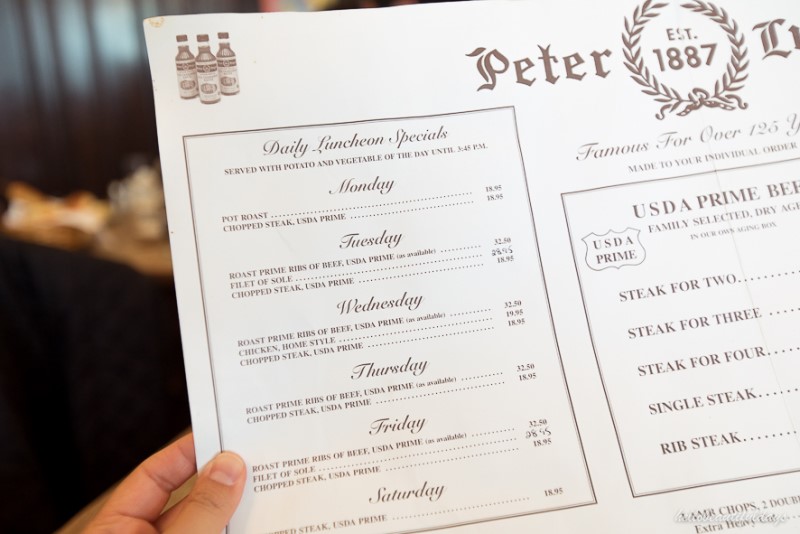 Peter
EST.
1887
Daily Luncheon Specials
SERVED WITH POTATO AND VEGETABLE OF THE DAY UNTIL 3:45 P.M.
Monday
POT ROAST 18.95
CHOPPED STEAK, USDA PRIME 18.95
Tuesday
ROAST PRIME RIBS OF BEEF, USDA PRIME (as available) 32.50
FILET OF SOLE 28.95
CHOPPED STEAK, USDA PRIME 18.95
Wednesday
ROAST PRIME RIBS OF BEEF, USDA PRIME (as available) 32.50
CHICKEN, HOME STYLE 19.95
CHOPPED STEAK, USDA PRIME 18.95
Thursday
ROAST PRIME RIBS OF BEEF, USDA PRIME (as available) 32.50
CHOPPED STEAK, USDA PRIME 18.95
Friday
ROAST PRIME RIBS OF BEEF, USDA PRIME (as available) 32.50
FILET OF SOLE 28.95
CHOPPED STEAK, USDA PRIME 18.95
Saturday
CHOPPED STEAK, USDA PRIME 18.95
Famous For Over 125 Y
MADE TO YOUR INDIVIDUAL ORDER
USDA PRIME BEE
FAMILY SELECTED, DRY AGE
IN OUR OWN AGING BOX
USDA
PRIME
STEAK FOR TWO
STEAK FOR THREE
STEAK FOR FOUR
SINGLE STEAK
RIB STEAK
LAMB CHOPS, 2 DOUBL
Extra Heavy Cut